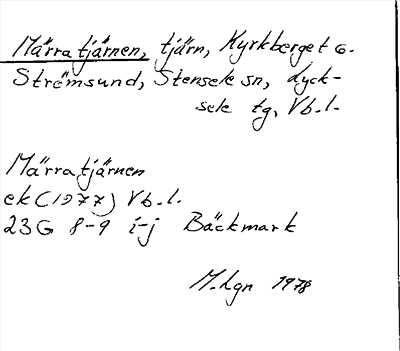 Märratjärnen, tjärn, Kyrkberget o.
Strömsund, Stensele sn, Lyck-
sele tg, Vb.l.
Märratjärnen
ek (1977) Vb.l.
23G 8-9 i-j Bäckmark
M.Lgn 1978